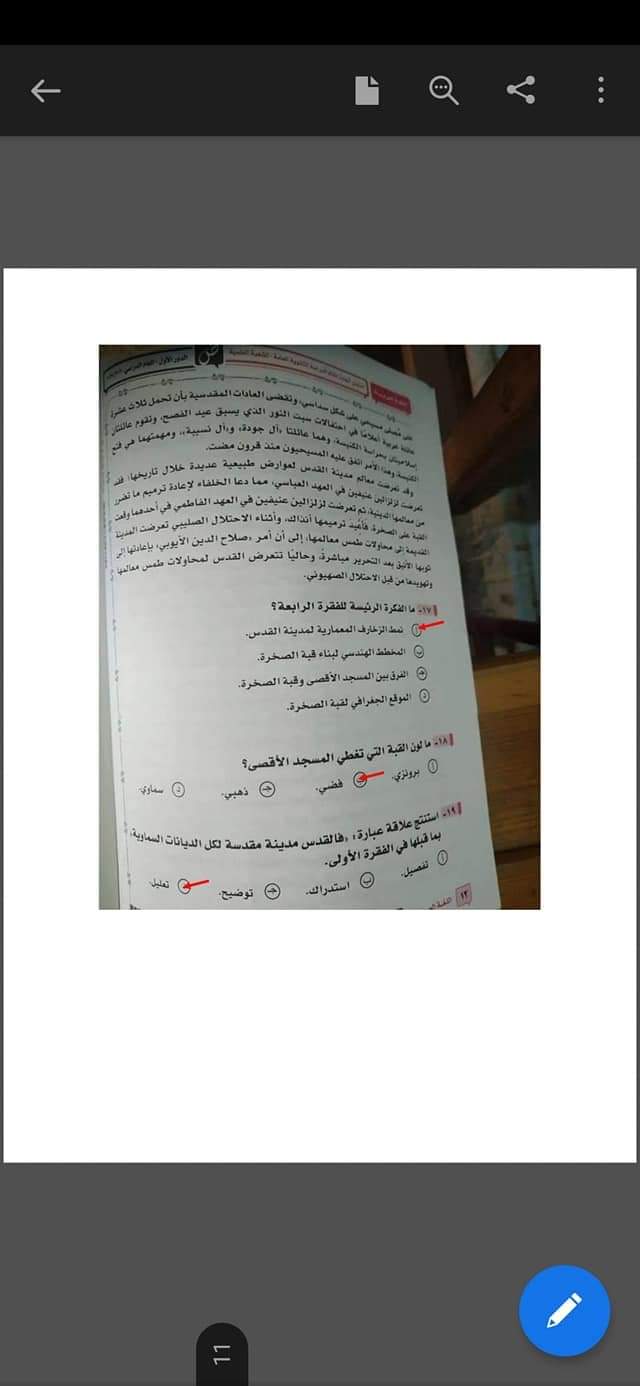 على مُصلى مسيحي على شكل سداسي، وتقضي العادات المقدسية بأن تحمل ثلاث عشرة
عائلة عربية أعلامًا في احتفالات سبت النور الذي يسبق عيد الفصح، وتقوم عائلتان
إسلاميتان بحراسة الكنيسة، وهما عائلتا «آل جودة» و«آل نسيبة»، ومهمتهما هي فتح
الكنيسة، وهذا الأمر اتفق عليه المسيحيون منذ قرون مضت.
وقد تعرضت معالم مدينة القدس لعوارض طبيعية عديدة خلال تاريخها؛ فقد
تعرضت لزلزالين عنيفين في العهد العباسي، مما دعا الخلفاء لإعادة ترميم ما تضرر
من معالمها الدينية، ثم تعرضت لزلزالين عنيفين في العهد الفاطمي في أحدهما وقعت
القبة على الصخرة، فأعيد ترميمها آنذاك، وأثناء الاحتلال الصليبي تعرضت المدينة
القديمة إلى محاولات طمس معالمها، إلى أن أمر «صلاح الدين الأيوبي» بإعادتها إلى
ثوبها الأنيق بعد التحرير مباشرة، وحاليًا تتعرض القدس لمحاولات طمس معالمها
وتهويدها من قبل الاحتلال الصهيوني.
١٧- ما الفكرة الرئيسة للفقرة الرابعة؟
أ نمط الزخارف المعمارية لمدينة القدس.
ب المخطط الهندسي لبناء قبة الصخرة.
ج الفرق بين المسجد الأقصى وقبة الصخرة.
د الموقع الجغرافي لقبة الصخرة.
١٨- ما لون القبة التي تغطي المسجد الأقصى؟
أ برونزي. ب فضي. ج ذهبي. د سماوي.
١٩- استنتج علاقة عبارة: «فالقدس مدينة مقدسة لكل الديانات السماوية»
بما قبلها في الفقرة الأولى.
أ تفصيل. ب استدراك. ج توضيح. د تعليل.
١٢
11